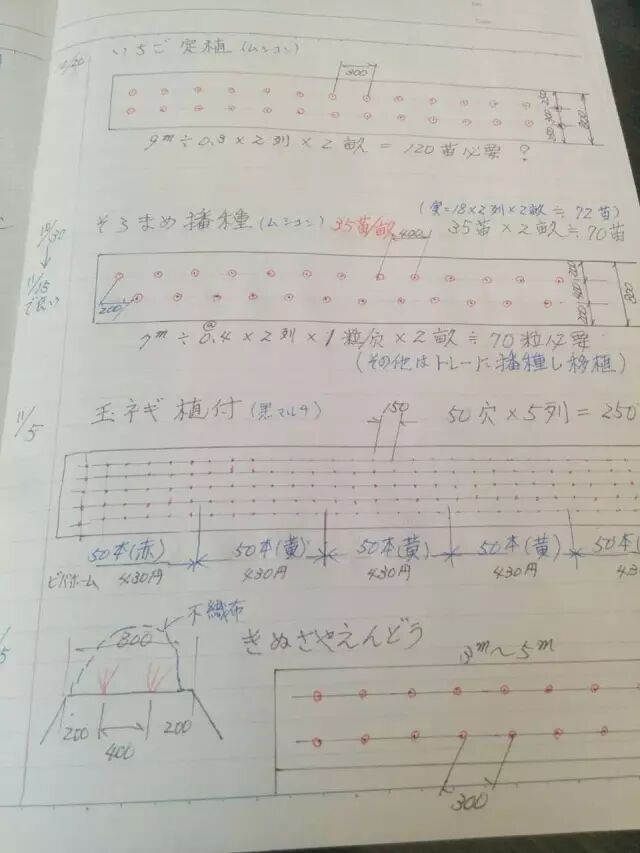 いちご定植(ムシコン)
300
250
300
250
800
9m÷0.3×2列×2畝=120苗必要?
(実=18×2列×2畝≒72苗)
10/30
そらまめ播種(ムシコン) 35苗/畝 35苗×2畝≒70苗
400
11/15
でもいい
200
800
7m÷0.4×2列×1粒/穴×2畝≒70粒必要
(その他はトレーに播種し移植)
11/5
玉ネギ植付(黒マルチ) 150 50穴×5列=250
50本(赤) 50本(黄) 50本(黄) 50本(黄) 50本(
ビバホーム 430円 430円 430円 430円 430
不織布
きぬさやえんどう
800
3m〜5m
200 200
400
300